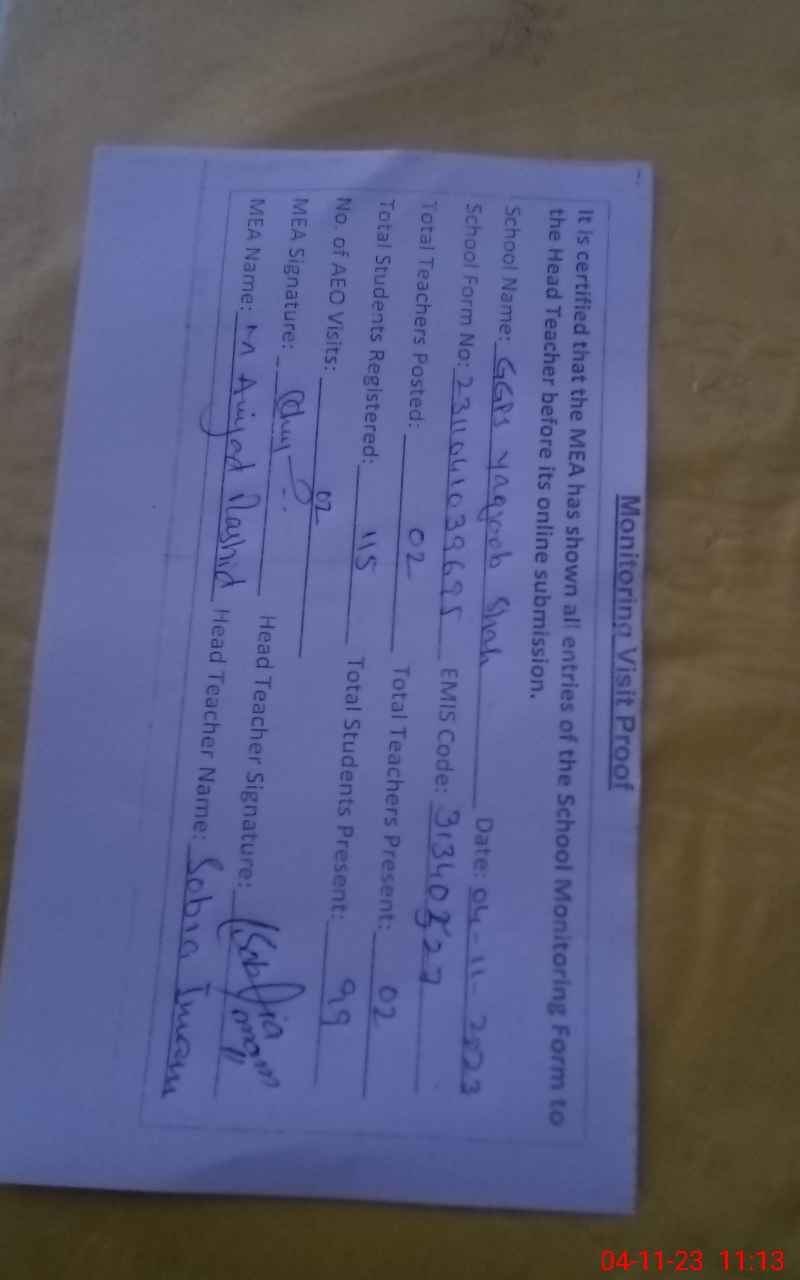 Monitoring Visit Proof
It is certified that the MEA has shown all entries of the School Monitoring Form to
the Head Teacher before its online submission.
School Name: GGPS Yaqoob Shah Date: 04-11-2023
School Form No: 2311041039695 EMIS Code: 31340227
Total Teachers Posted: 02 Total Teachers Present: 02
Total Students Registered: 115 Total Students Present: 99
No. of AEO Visits: 02
MEA Signature: Head Teacher Signature: Sobia Imam
MEA Name: M Amjad Rashid Head Teacher Name: Sobia Imam
04-11-23 11:13